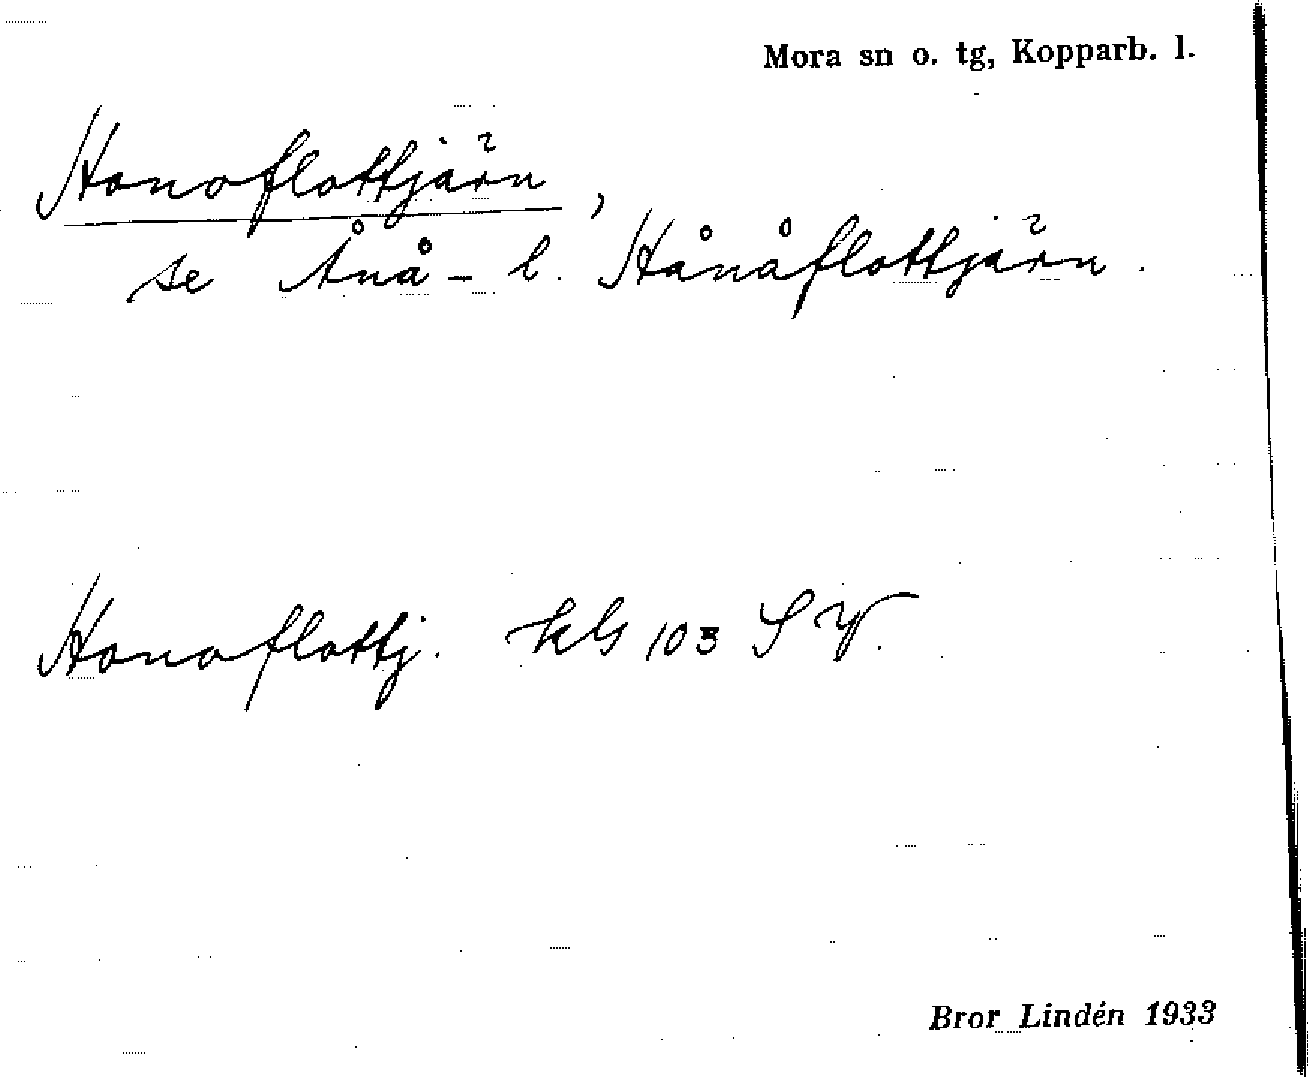 Mora sn o. tg, Kopparb. l.
Honoflottjärn,
se Ånå- l. Hånåflottjärn.
Honoflottj. kbl 103 SV.
Bror Lindén 1933